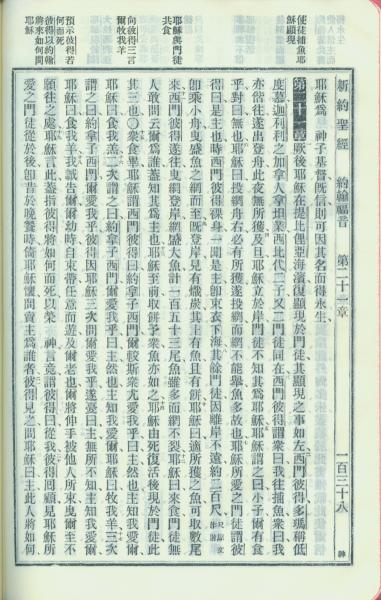 新約聖經 約翰福音 第二十一章 一百三十八 神
使徒捕魚耶
穌顯現
耶穌與門徒
共食
向彼得三言
爾牧我羊
預示彼得若
何而死
彼得以約翰
將來如何問
耶穌
耶穌爲 神子基督旣信則可因其名而得永生
第二十一章 厥後耶穌在提比哩亞海濱復顯現於門徒其顯現之事如左西門彼得多瑪稱低
度慕偕迦利利之加拿人拿坦業西比代二子又二門徒同在西門彼得謂衆曰我往捕魚衆曰我
亦偕往遂出登舟此夜無所獲及旦耶穌立於岸門徒不知其爲耶穌耶穌謂之曰小子爾有食
乎對曰無也耶穌曰投網舟右必有所獲遂投網而網不能舉魚多故也耶穌所愛之門徒謂彼
得曰是主也時西門彼得裸身一聞是主卽束衣下海其餘門徒因離岸不遠約二百尺
卽乘小舟曳盛魚之網而至旣登岸見有熾炭其上有魚且有餅耶穌曰適所獲之魚可取數尾
來西門彼得遂往曳網登岸網盛大魚計一百五十三尾魚雖多而網不裂耶穌曰來食門徒無
人敢問云爾爲誰蓋知其爲主也耶穌至前取餅予衆魚亦如之耶穌由死復活後現於門徒此
其三也〇衆食畢耶穌謂西門彼得曰約拿子西門爾較斯衆尤愛我乎曰主然也主知我愛爾
耶穌曰食我羔二次謂之曰約拿子西門爾愛我乎曰主然也主知我愛爾耶穌曰牧我羊三次
謂之曰約拿子西門爾愛我乎彼得因耶穌三次問爾愛我乎遂憂曰主無所不知主知我愛爾
耶穌曰食我羊我誠告爾爾幼時自束帶任意而遊及爾老也爾將伸手被他人所束曳爾至不
願往之處耶穌言此蓋指彼得將如何而死以榮 神言竟謂彼得曰從我彼得回顧見耶穌所
愛之門徒從於後卽昔於晚餐時倚耶穌懷問賣主爲誰者彼得見之問耶穌曰主此人將如何